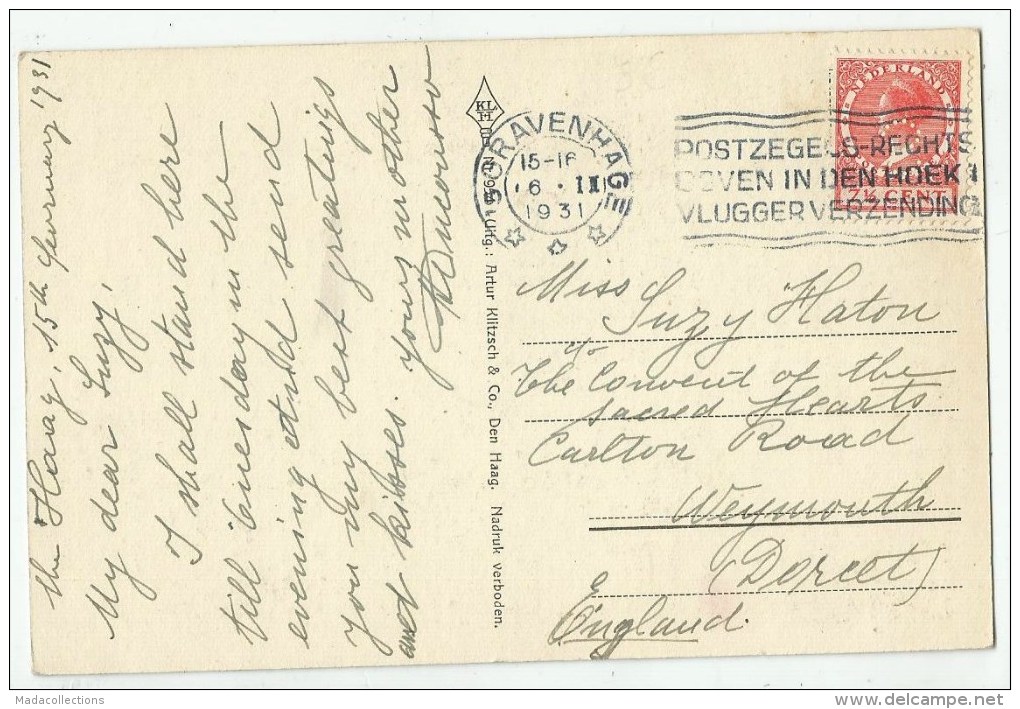 the Haag, 15th February 1931
My dear Suzy,
I shall stand here
till Wnesday in the
evening and send
you my best greatings
and kisses. yours mother
KL.
H.
Uitg.: Artur Klitzsch & Co., Den Haag. Nadruk verboden.
'S GRAVENHAGE
15-16
6 · II
1931
POSTZEGELS-RECHTS
BOVEN IN DEN HOEK
VLUGGER VERZENDING
NEDERLAND
7½ CENT
Miss Suzy Haton
c/o
The Convent of the
Sacred Hearts
Carlton Road
Weymouth
(Dorcet)
England.
Madacollections
www.delcampe.net